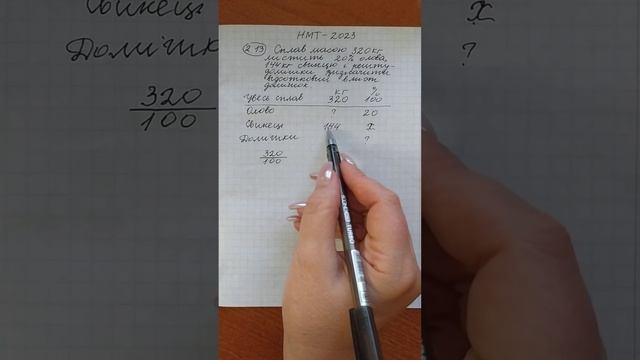 НМТ-2023
2.13 Сплав масою 320 кг
містить 20% олова,
144 кг свинцю і решту-
домішки. Визначити
відсотковий вміст
домішок
кг %
Увесь сплав 320 100
Олово ? 20
Свинець 144 x
Домішки ?
320
100